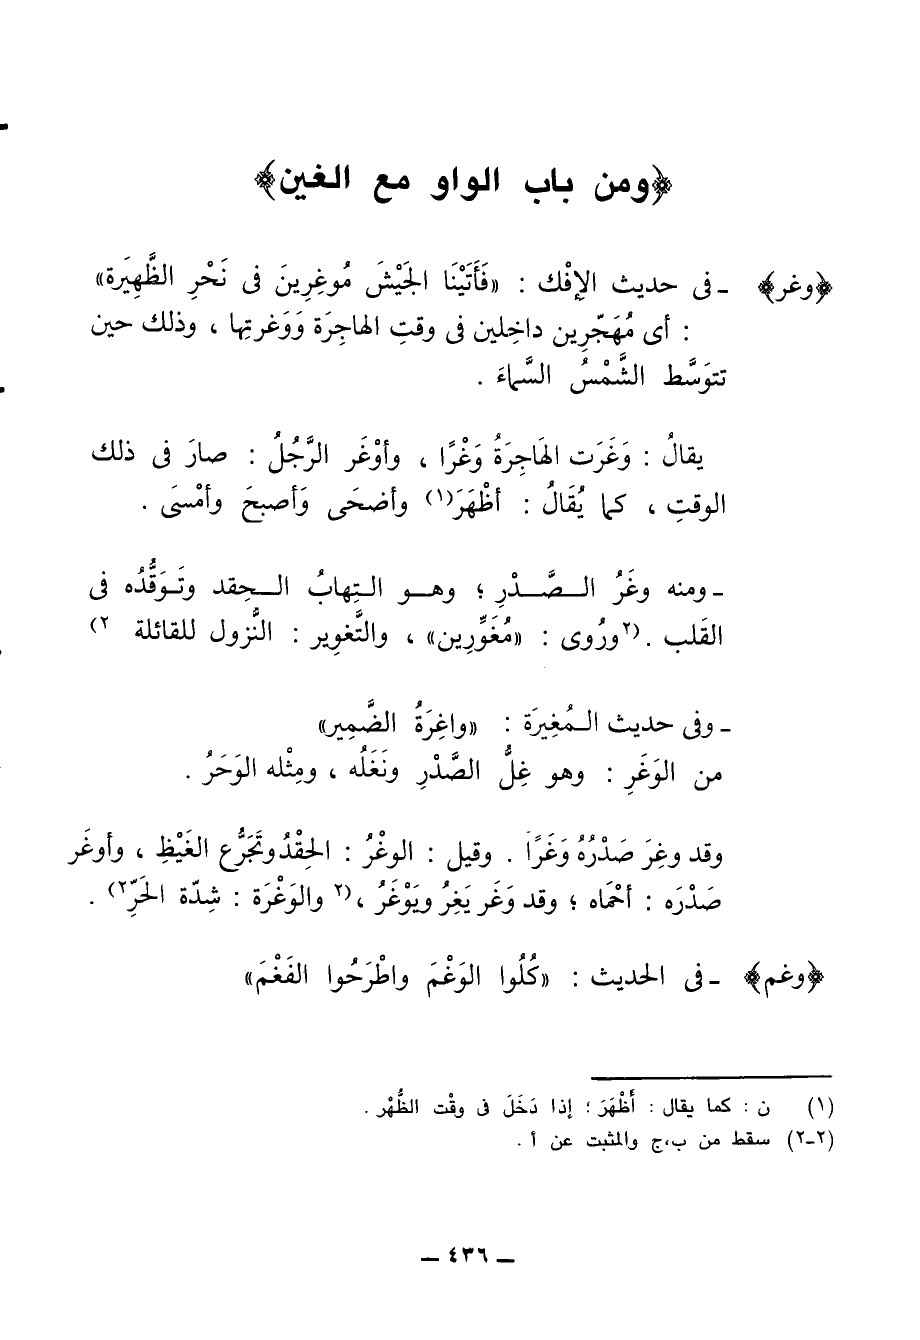 ﴿ومن باب الواو مع الغين﴾
﴿وغر﴾ - فى حديث الإفْك : «فَأَتَيْنَا الجَيْشَ مُوغِرِينَ فى نَحْرِ الظَّهِيَرة»
: أى مُهَجِّرِين داخِلين فى وقتِ الهاجِرَة وَوَغرتِها ، وذلك حين
تتوَسَّط الشَّمْسُ السَّماءَ .
يقالُ : وَغَرَت الهَاجِرَةُ وَغْرًا ، وأوْغَر الرَّجُلُ : صارَ فى ذلك
الوقتِ ، كما يُقَالُ : أظْهَرَ(١) وأضحَى وَأصبحَ وأمْسىَ .
- ومنه وغَرُ الـصَّـدْرِ ؛ وهـو الـتِهابُ الـحِقد وتَـوَقُّدُه فى
القَلب . (٢ورُوى : «مُغَوِّرين» ، والتَّغوِير : النُّزول للقائلة ٢)
- وفى حديث الـمُغِيرَة : «واغِرَةُ الضَّمِير»
من الوَغَرِ : وهو غِلُّ الصَّدْرِ ونَغَلُه ، ومِثْله الوَحَرُ .
وقد وغِرَ صَدْرُهُ وَغَرًا . وقيل : الوغْرُ : الحِقْدُ وتَجَرُّع الغَيْظِ ، وأوغَر
صَدْرَه : أحْمَاه ؛ وقد وَغَر يَغِرُ ويَوْغَرُ ،(٢ والوَغْرَة : شِدّة الحَرِّ٢) .
﴿وغم﴾ - فى الحديث : «كُلُوا الوَغْمَ واطْرَحُوا الفَغْمَ»
(١) ن : كما يقال : أَظْهَرَ ؛ إذا دَخَلَ فى وقْت الظُّهْر .
(٢-٢) سقط من ب،ج والمثبت عن أ .
– ٤٣٦ –